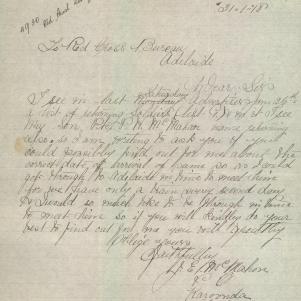 31-1-18
To Red Cross Bureau
Adelaide
Dear Sir
I see in last Saturday Advertiser Jan 26th
a list of returning soldiers I see
my son, Pte McMahon name returning
also, so I am writing to ask you if you
could possibly find out for me about the
correct date of arrival of same so as I could
get through to Adelaide in time to meet him
for we have only a train every second day
& I would so much like to be through in time
to meet him so if you will kindly do your
best to find out for me you will greatly
oblige yours
Faithfully
McMahon
Karoonda